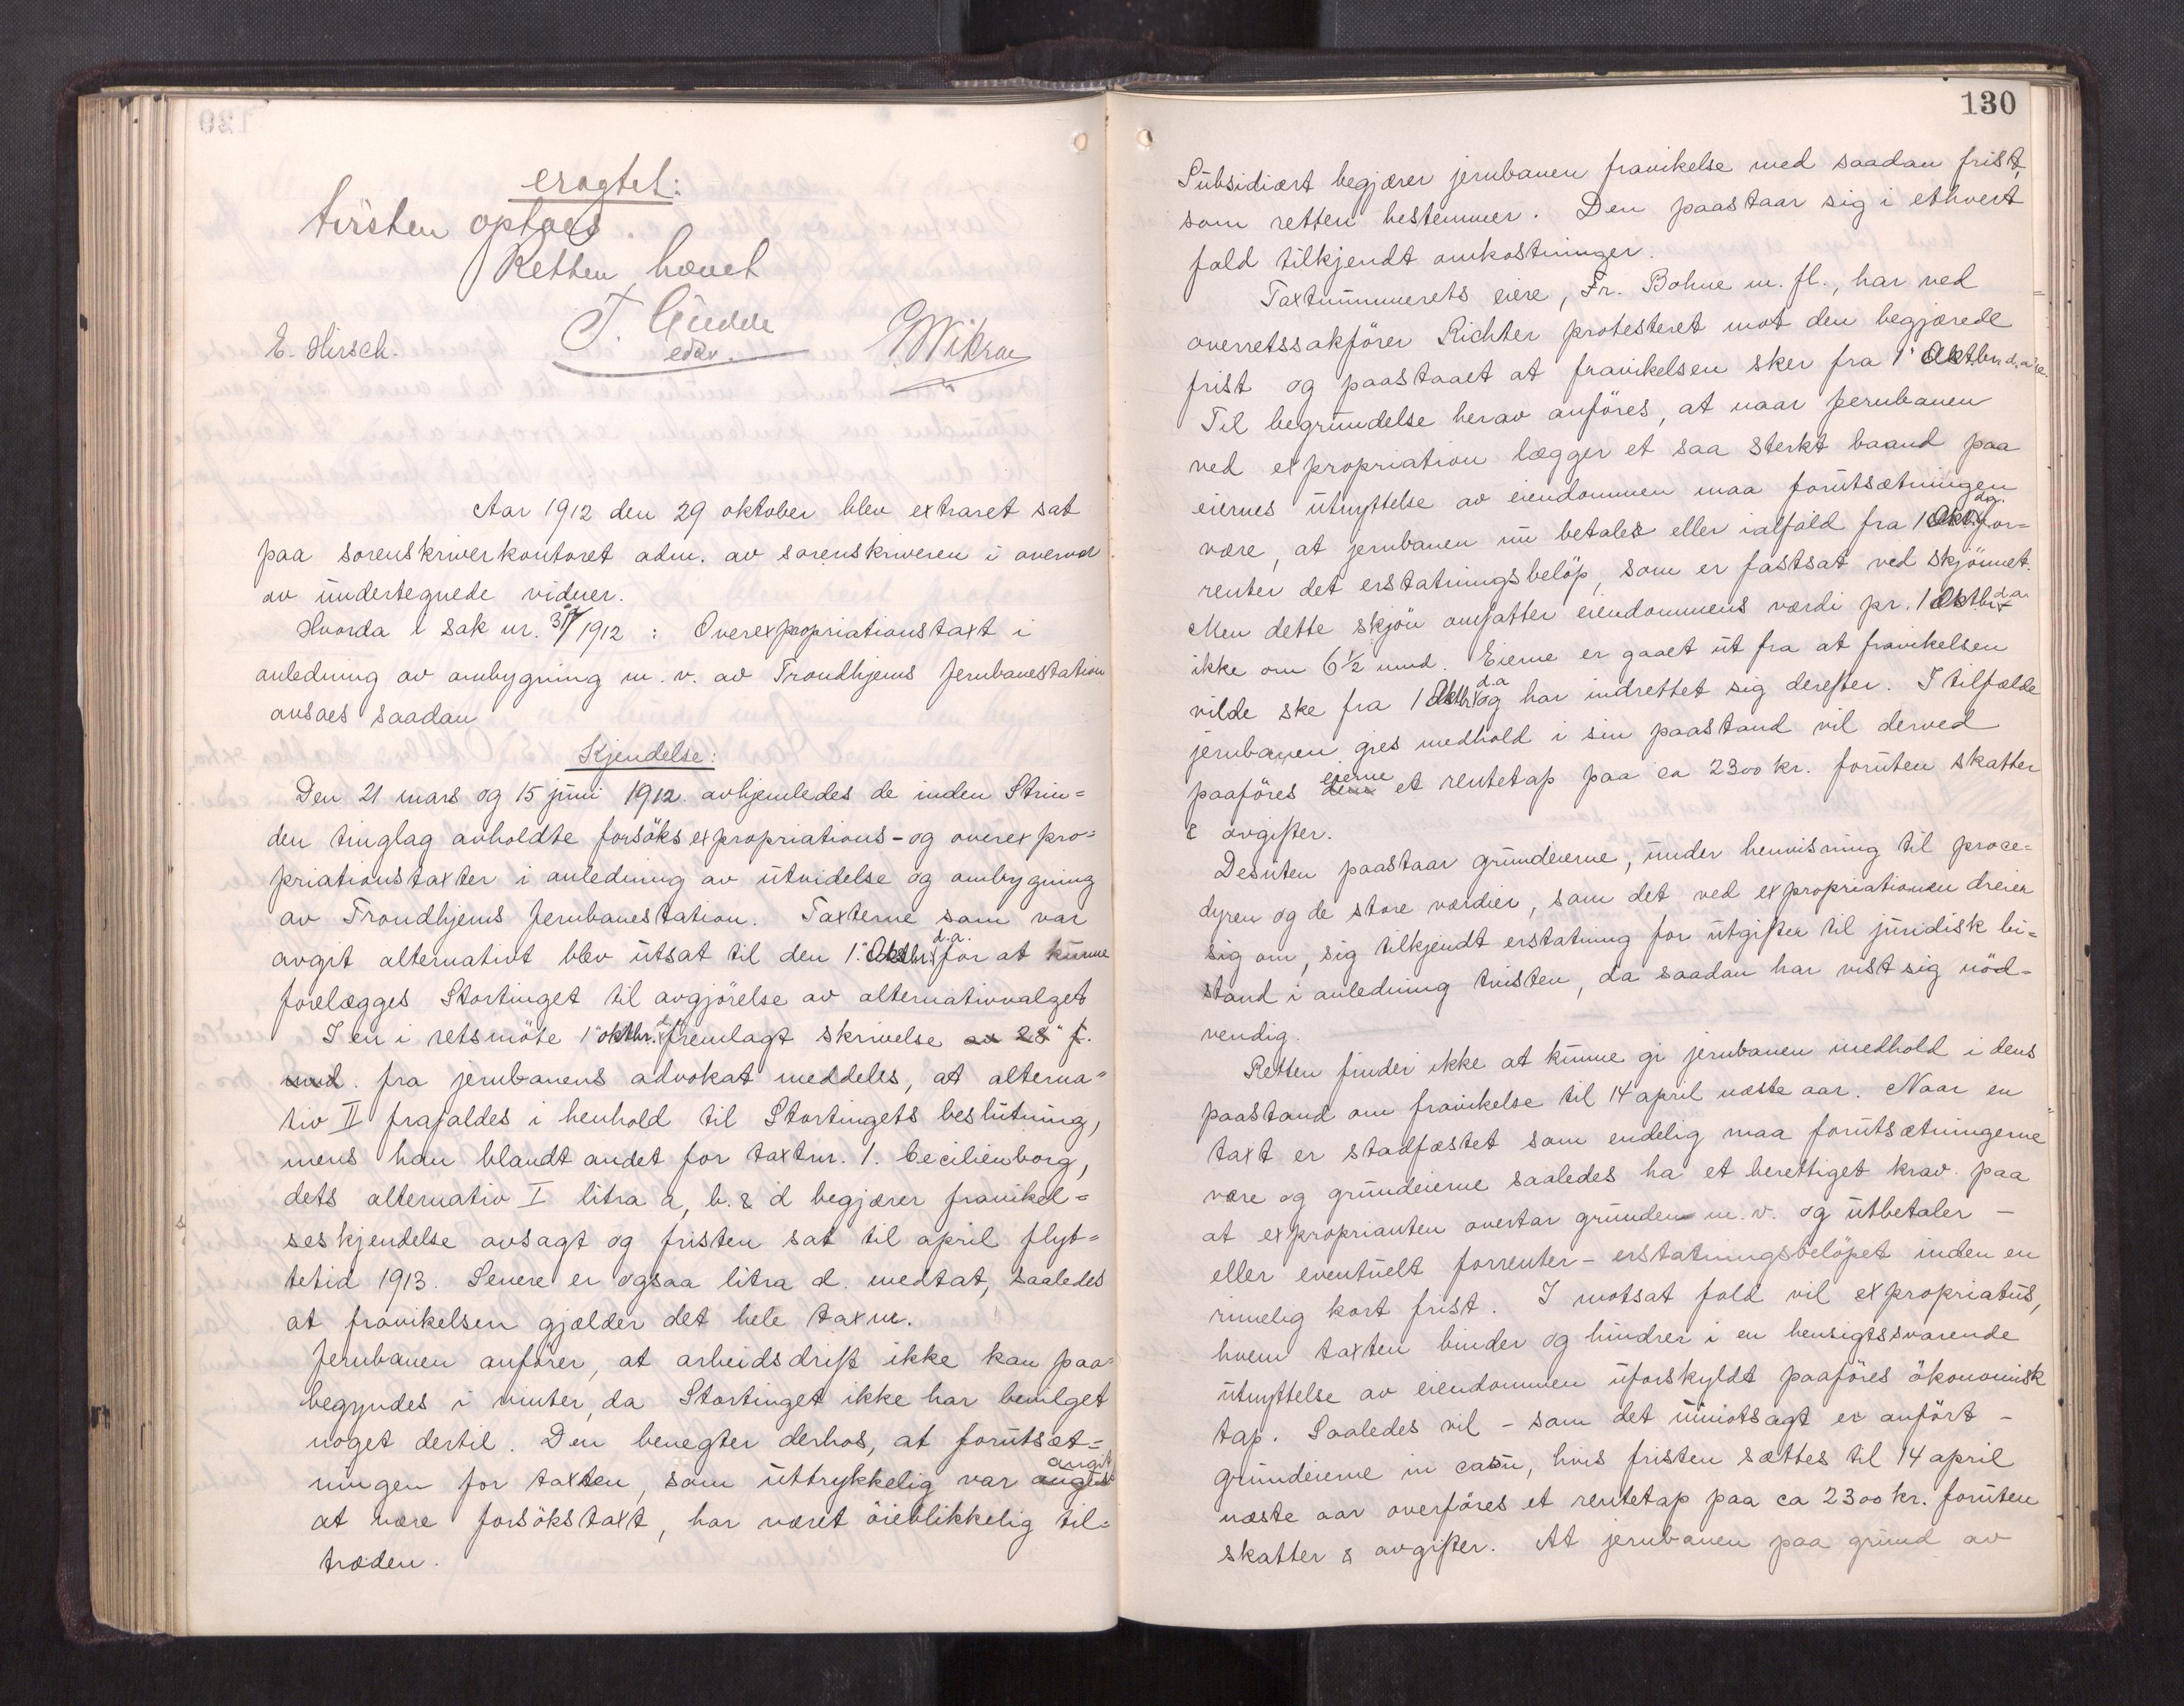 eragtet:
tvisten optaes.
Retten hævet
T. Gudde
edsv.
E. Hirsch.
Aar 1912 den 29 oktober blev extraret sat
paa sorenskriverkontoret adm. av sorenskriveren i overvær
av undertegnede vidner.
Hvorda i sak nr. /1912: Overexpropriationstaxt i
anledning av ombygning m. v. av Trondhjems Jernbanestation
avsaes saadan
Kjendelse:
Den 21 mars og 15 juni 1912 avhjemledes de inden Strin=
den tinglag avholdte forsöks expropriations- og overexpro=
priationstaxter i anledning av utvidelse og ombygning
av Trondhjems Jernbanestation. Taxterne som var
avgit alternativt blev utsat til den 1ste Oktbr. d.a. for at kunne
forelægges Stortinget til avgjörelse av alternativvalget
I en i retsmöte 1ste oktbr. d.a. fremlagt skrivelse av 28" f.
md. fra jernbanens advokat meddeles, at alterna=
tiv II frafaldes i henhold til Stortingets beslutning,
mens han blandt andet for taxtnr. 1. Cecilienborg,
dets alternativ I litra a, b. & d begjærer fravikel=
seskjendelse avsagt og fristen sat til april flyt=
tetid 1913. Senere er ogsaa litra d. medtat, saaledes
at fravikelsen gjælder det hele taxnr.
Jernbanen anförer, at arbeidsdrift ikke kan paa=
begyndes i vinter, da Stortinget ikke har bevilget
noget dertil. Den benegter derhos, at forutsæt=
ningen for taxten, som uttrykkelig var angit
at være forsökstaxt, har været öieblikkelig til=
træden.
130
Subsidiært begjærer jernbanen fravikelse med saadan frist,
som retten bestemmer. Den paastaar sig i ethvert
fald tilkjendt omkostninger.
Taxtnummerets eiere, Fr. Bohne m. fl., har ved
overretssakförer Richter protesteret mot den begjærede
frist og paastaaet at fravikelsen sker fra 1ste Oktbr. d.a.
Til begrundelse herav anföres, at naar Jernbanen
ved expropriation lægger et saa sterkt baand paa
eiernes utnyttelse av eiendommen maa forutsætningen
være, at jernbanen nu betaler eller ialfald fra 1 Oktbr. d.a. for=
renter det erstatningsbelöp, som er fastsat ved skjönnet.
Men dette skjön omfatter eiendommens værdi pr. 1 Oktbr. d.a.
ikke om 6½ mnd. Eierne er gaaet ut fra at fravikelsen
vilde ske fra 1 Oktbr. d.a og har indrettet sig derefter. I tilfælde
jernbanen gies medhold i sin paastand vil derved
paaföres eierne et rentetap paa ca 2300 kr. foruten skatter
& avgifter.
Desuten paastaar grundeierne, under henvisning til proce=
dyren og de store værdier, som det ved expropriationen dreier
sig om, sig tilkjendt erstatning for utgifter til juridisk bi=
stand i anledning tvisten, da saadan har vist sig nöd=
vendig.
Retten finder ikke at kunne gi jernbanen medhold i dens
paastand om fravikelse til 14 april næste aar. Naar en
taxt er stadfæstet som endelig maa forutsætningerne
være og grundeierne saaledes ha et berettiget krav paa
at exproprianten overtar grunden m. v. og utbetaler -
eller eventuelt forrenter - erstatningsbelöpet inden en
rimelig kort frist. I motsat fald vil expropriatus,
hvem taxten binder og hindrer i en hensigtssvarende
utnyttelse av eiendommen uforskyldt paaföres ökonomisk
tap. Saaledes vil - som det uimotsagt er anfört -
grundeierne in casu, hvis fristen sættes til 14 april
næste aar overföres et rentetap paa ca 2300 kr. foruten
skatter & avgifter. At jernbanen paa grund av